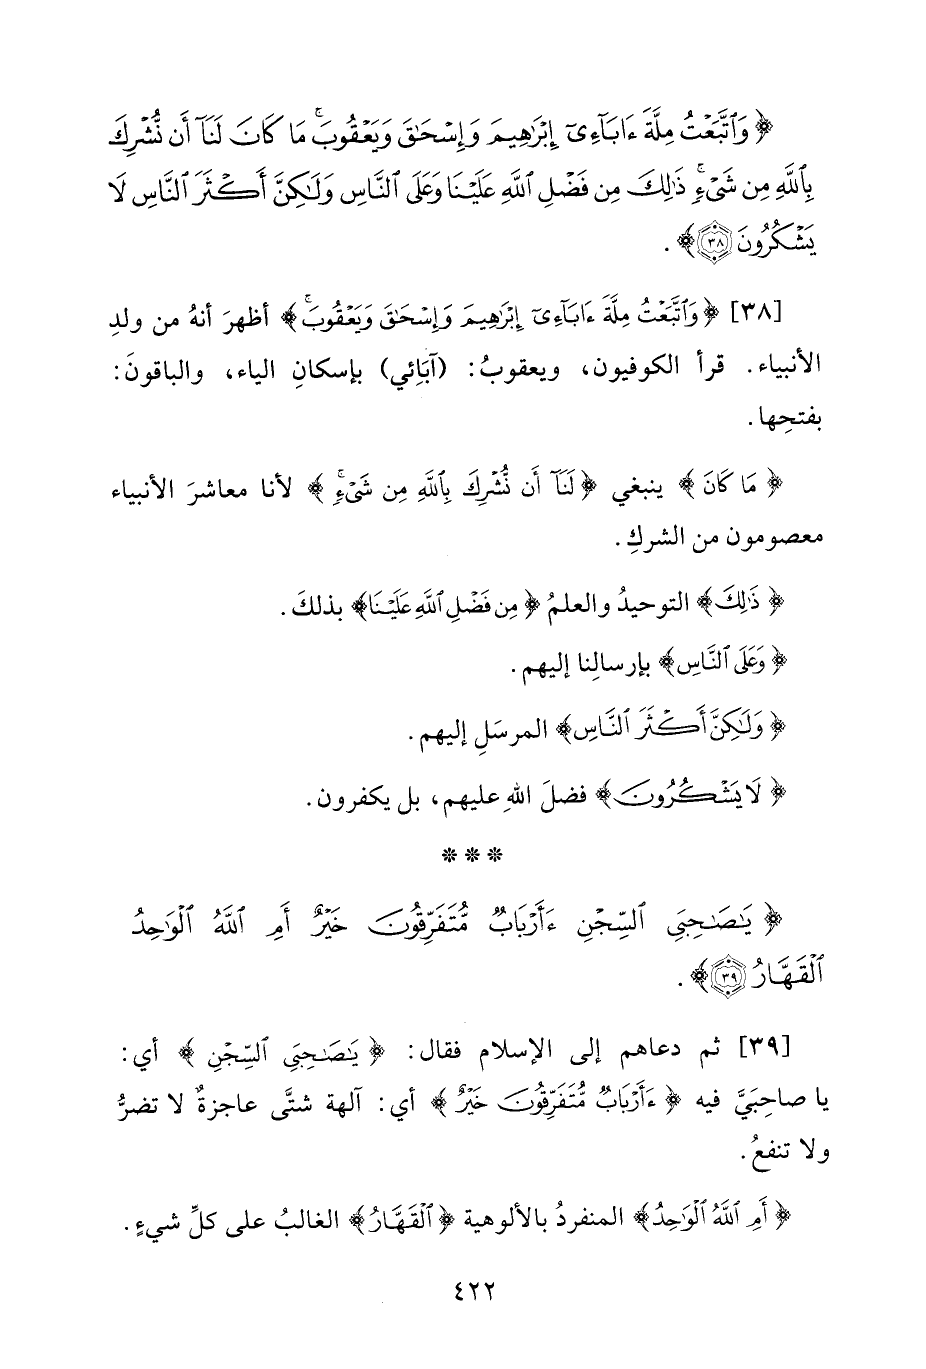 ﴿ وَٱتَّبَعْتُ مِلَّةَ ءَابَآءِىٓ إِبْرَٰهِيمَ وَإِسْحَٰقَ وَيَعْقُوبَ ۚ مَا كَانَ لَنَآ أَن نُّشْرِكَ
بِٱللَّهِ مِن شَىْءٍ ۚ ذَٰلِكَ مِن فَضْلِ ٱللَّهِ عَلَيْنَا وَعَلَى ٱلنَّاسِ وَلَٰكِنَّ أَكْثَرَ ٱلنَّاسِ لَا
يَشْكُرُونَ ٣٨﴾ .
[٣٨] ﴿ وَٱتَّبَعْتُ مِلَّةَ ءَابَآءِىٓ إِبْرَٰهِيمَ وَإِسْحَٰقَ وَيَعْقُوبَ ۚ ﴾ أظهرَ أنهُ من ولدِ
الأنبياء. قرأ الكوفيون، ويعقوبُ: (آبَائِي) بإسكانِ الياء، والباقونَ:
بفتحِها.
﴿ مَا كَانَ ﴾ ينبغي ﴿ لَنَآ أَن نُّشْرِكَ بِٱللَّهِ مِن شَىْءٍ ۚ ﴾ لأنا معاشرَ الأنبياء
معصومون من الشركِ.
﴿ ذَٰلِكَ ﴾ التوحيدُ والعلمُ ﴿ مِن فَضْلِ ٱللَّهِ عَلَيْنَا ﴾ بذلكَ.
﴿ وَعَلَى ٱلنَّاسِ ﴾ بإرسالِنا إليهم.
﴿ وَلَٰكِنَّ أَكْثَرَ ٱلنَّاسِ ﴾ المرسَلِ إليهم.
﴿ لَا يَشْكُرُونَ ﴾ فضلَ اللهِ عليهم، بل يكفرون.
* * *
﴿ يَٰصَٰحِبَىِ ٱلسِّجْنِ ءَأَرْبَابٌ مُّتَفَرِّقُونَ خَيْرٌ أَمِ ٱللَّهُ ٱلْوَٰحِدُ
ٱلْقَهَّارُ ٣٩﴾ .
[٣٩] ثم دعاهم إلى الإسلام فقال: ﴿ يَٰصَٰحِبَىِ ٱلسِّجْنِ ﴾ أي:
يا صاحِبَيَّ فيه ﴿ ءَأَرْبَابٌ مُّتَفَرِّقُونَ خَيْرٌ ﴾ أي: آلهة شتَّى عاجزةٌ لا تضرُّ
ولا تنفعُ.
﴿ أَمِ ٱللَّهُ ٱلْوَٰحِدُ ﴾ المنفردُ بالألوهية ﴿ ٱلْقَهَّارُ ﴾ الغالبُ على كلِّ شيءٍ.
٤٢٢